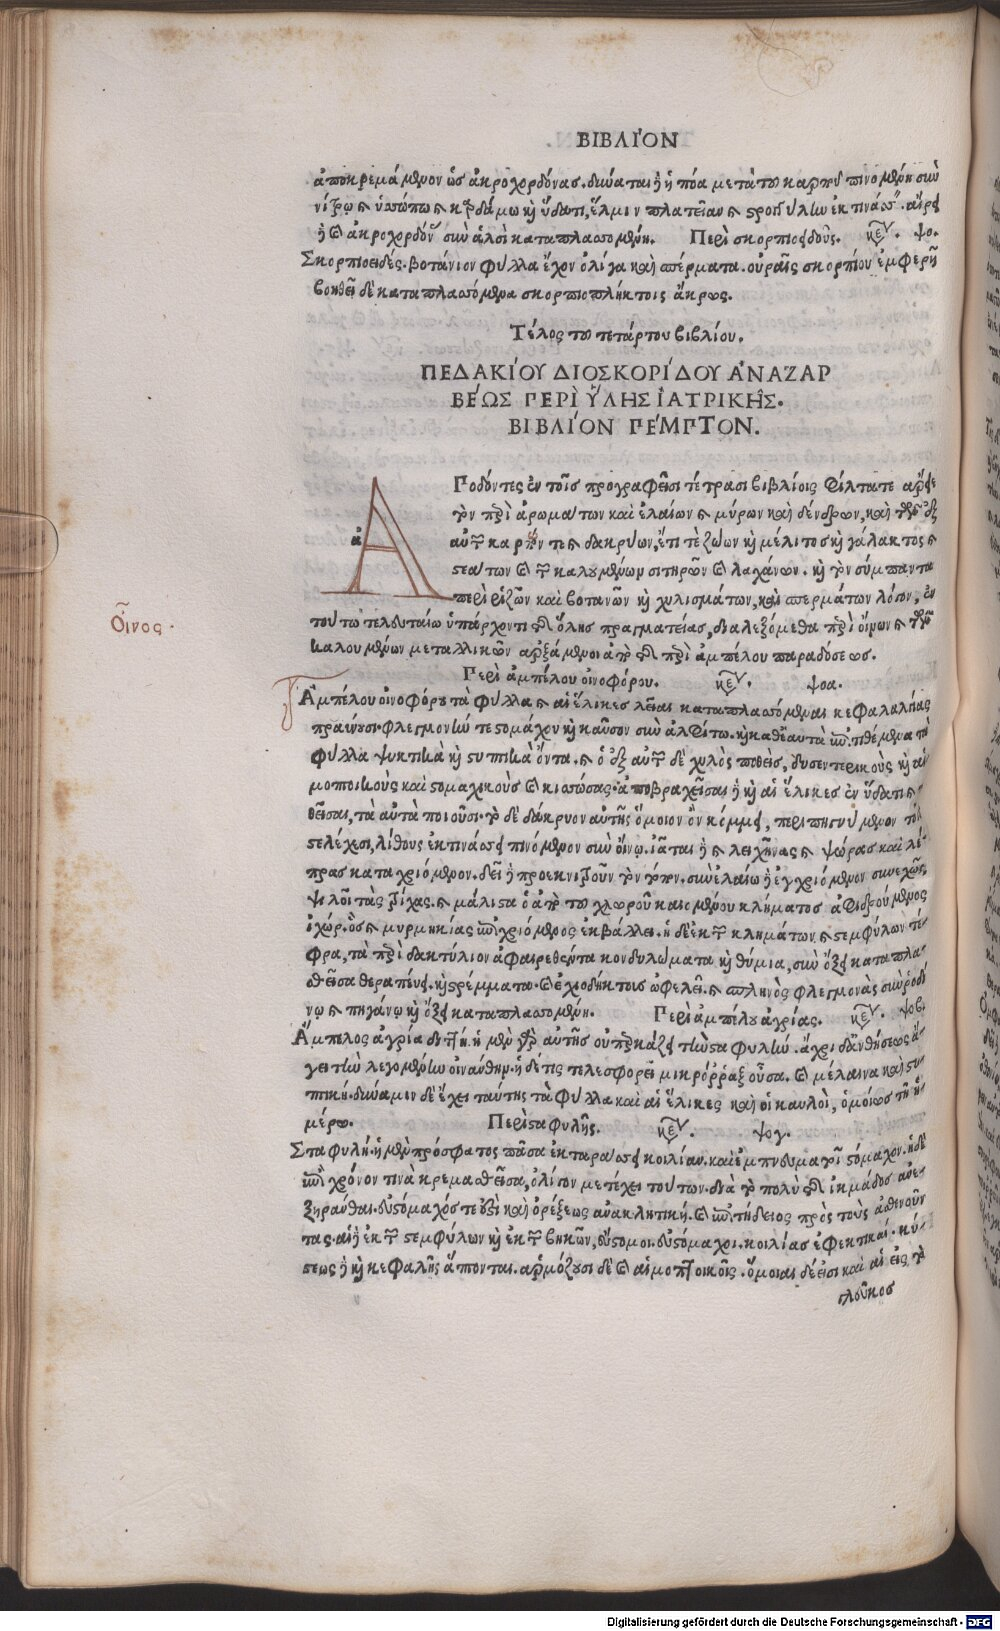 ΒΙΒΛΙΌΝ
ἀποκρεμάμενον ὡς ἀκροχορδόνας. δύναται ἡ πόα μετὰ τοῦ καρποῦ πινομένη σὺν
νίτρῳ καὶ ὑσώπῳ καὶ καρδάμῳ καὶ ὕδατι, ἕλμιν πλατεῖαν καὶ στρογγύλην ἐκτινάσσειν. αἴρει
καὶ ἀκροχορδόνας σὺν ἁλσὶ καταπλασσομένη. Περὶ σκορπιοειδοῦς. κεφ. ψο.
Σκορπιοειδές. βοτάνιον φύλλα ἔχον ὀλίγα καὶ σπέρματα. οὐραῖς σκορπίου ἐμφερῆ
βοηθεῖ δὲ καταπλασσόμενα σκορπιοπλήκτοις ἄκρως.
Τέλος τοῦ τετάρτου βιβλίου.
ΠΕΔΑΚΙΟΥ ΔΙΟΣΚΟΡΙΔΟΥ ἈΝΑΖΑΡ
ΒΈΩΣ ΠΕΡῚ ὝΛΗΣ ἸΑΤΡΙΚΗ͂Σ.
ΒΙΒΛΊΟΝ ΠΈΜΠΤΟΝ.
Α
ἀ
Ποδόντες ἐν τοῖς προγραφεῖσι τέτρασι βιβλίοις φίλτατε ἄρειε
τὸν περὶ ἀρωμάτων καὶ ἐλαίων καὶ μύρων καὶ δένδρων, καὶ τῶν ἐξ
αὐτῶν καρπῶν τε καὶ δακρύων, ἔτι τὲ ζώων καὶ μέλιτος καὶ γάλακτος καὶ
στεάτων καὶ τῶν καλουμένων σιτηρῶν καὶ λαχάνων. καὶ τὸν σύμπαντα
περὶ ῥιζῶν καὶ βοτανῶν καὶ χυλισμάτων, καὶ σπερμάτων λόγον, ἐν
τούτῳ τελευταίῳ ὑπάρχοντι τῆς ὅλης πραγματείας, διαλεξόμεθα περὶ οἴνων καὶ τῶν
καλουμένων μεταλλικῶν ἀρξάμενοι ἀπὸ τῆς περὶ ἀμπέλου παραδόσεως.
Οἶνος.
Περὶ ἀμπέλου οἰνοφόρου. κεφ. ψοα.
Ἀμπέλου οἰνοφόρου τὰ φύλλα καὶ αἱ ἕλικες λεῖαι καταπλασσόμεναι κεφαλαλγίας
πραΰνουσι. φλεγμονήν τε στομάχου καὶ καῦσον σὺν ἀλφίτῳ. καὶ καθ' ἑαυτὰ ἐπιτιθέμενα τὰ
φύλλα ψυκτικὰ καὶ στυπτικὰ ὄντα. καὶ ὁ ἐξ αὐτῶν δὲ χυλὸς ποθεὶς, δυσεντερικοὺς καὶ αἱ
μοπτοικοὺς καὶ στομαχικοὺς καὶ κισσώσας. ἀποβραχεῖσαι καὶ αἱ ἕλικες ἐν ὕδατι καὶ
θεῖσαι, τὰ αὐτὰ ποιοῦσι. τὸ δὲ δάκρυον αὐτῆς ὅμοιον ὂν κόμμει, περιπηγνύμενον τοῖς
στελέχεσι, λίθους ἐκτινάσσει πινόμενον σὺν οἴνῳ. ἰᾶται καὶ λειχῆνας καὶ ψώρας καὶ λέ-
πρας καταχριόμενον. δεῖ προεκνιτροῦν τὸν τόπον. σὺν ἐλαίῳ ἐγχριόμενον συνεχῶς,
ψιλοῖ τὰς τρίχας. καὶ μάλιστα ὁ ἀπὸ τοῦ χλωροῦ καιομένου κλήματος ἀφιδρούμενος
ἰχώρ. ὃς καὶ μυρμηκίας ἐπιχριόμενος ἐκβάλλει. ἡ δὲ ἐκ τῶν κλημάτων καὶ στεμφύλων τέ-
φρα, τὰ περὶ δακτύλιον ἀφαιρεθέντα κονδυλώματα καὶ θύμια, σὺν ὄξει καταπλα-
σθεῖσα θεραπεύει. καὶ στρέμματα. καὶ ἐχιοδήκτους ὠφελεῖ. καὶ σπληνὸς φλεγμονὰς σὺν ῥοδί
νῳ καὶ πηγάνῳ καὶ ὄξει καταπλασσομένη. Περὶ ἀμπέλου ἀγρίας. κεφ. ψοβ.
Ἄμπελος ἀγρία διττή. ἡ μὲν γὰρ αὐτῆς οὐ περκάζει τὴν σταφυλήν. ἄχρι δ' ἀνθήσεως ἄ-
γει τὴν λεγομένην οἰνάνθην. ἡ δέ τις τελεσφορεῖ μικρόρραξ οὖσα. καὶ μέλαινα καὶ στυ-
πτική. δύναμιν δὲ ἔχει ταύτης τὰ φύλλα καὶ αἱ ἕλικες καὶ οἱ καυλοὶ, ὁμοίως τῇ ἡ-
μέρῳ. Περὶ σταφυλῆς. κεφ. ψογ.
Σταφυλή. ἡ μὲν πρόσφατος πᾶσα ἐκταράσσει κοιλίαν. καὶ ἐμπνευματοῖ στόμαχον. ἡ δὲ
ἐπὶ χρόνον τινὰ κρεμασθεῖσα, ὀλίγον μετέχει τούτων. διὰ τὸ πολὺ τῆς ἰκμάδος ἀνε-
ξηράνθαι. εὐστόμαχός τέ ἐστι καὶ ὀρέξεως ἀνακλητική. καὶ ἐπιτήδειος πρὸς τοὺς ἀσθενοῦν
τας. αἱ ἐκ τῶν στεμφύλων καὶ ἐκ τῶν βηκῶν, εὔστομοι. εὐστόμαχοι. κοιλίας ἐφεκτικαί. κύ-
στεως καὶ κεφαλῆς ἅπτονται. ἁρμόζουσι δὲ καὶ αἱμοπτοικοῖς. ὅμοιαι δέ εἰσι καὶ αἱ εἰς τὸ
γλεῦκος
Digitalisierung gefördert durch die Deutsche Forschungsgemeinschaft - DFG